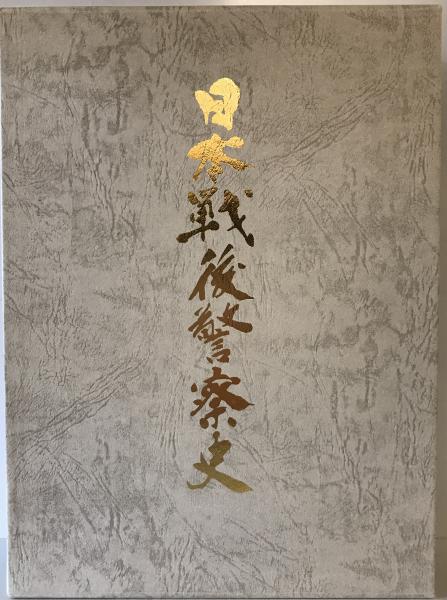 日本戦後警察史